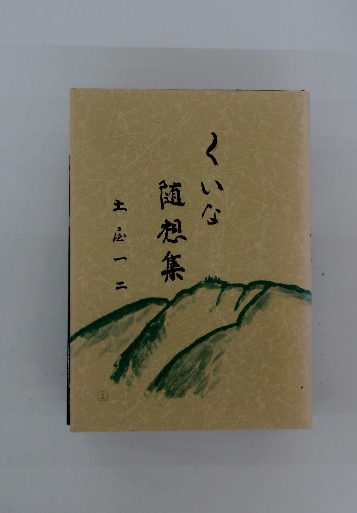 くいな
随想集
土屋一二